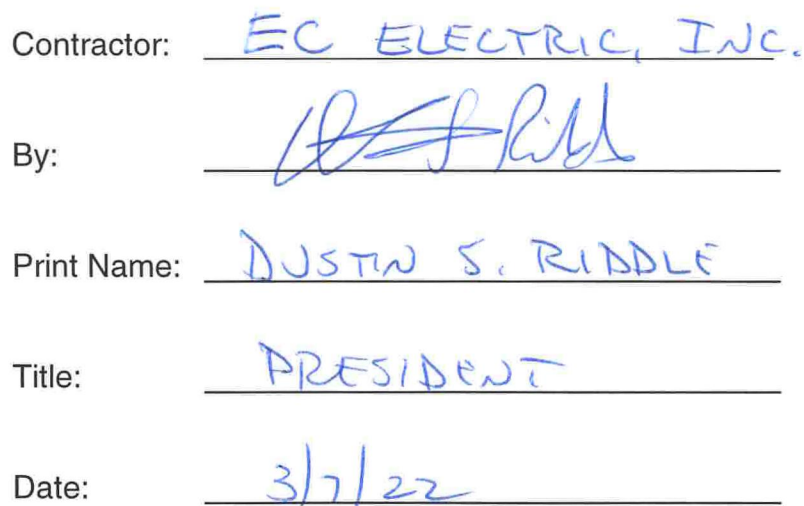 Contractor: EC ELECTRIC, INC.
By:
Print Name: DUSTIN S. RIDDLE
Title: PRESIDENT
Date: 3/7/22